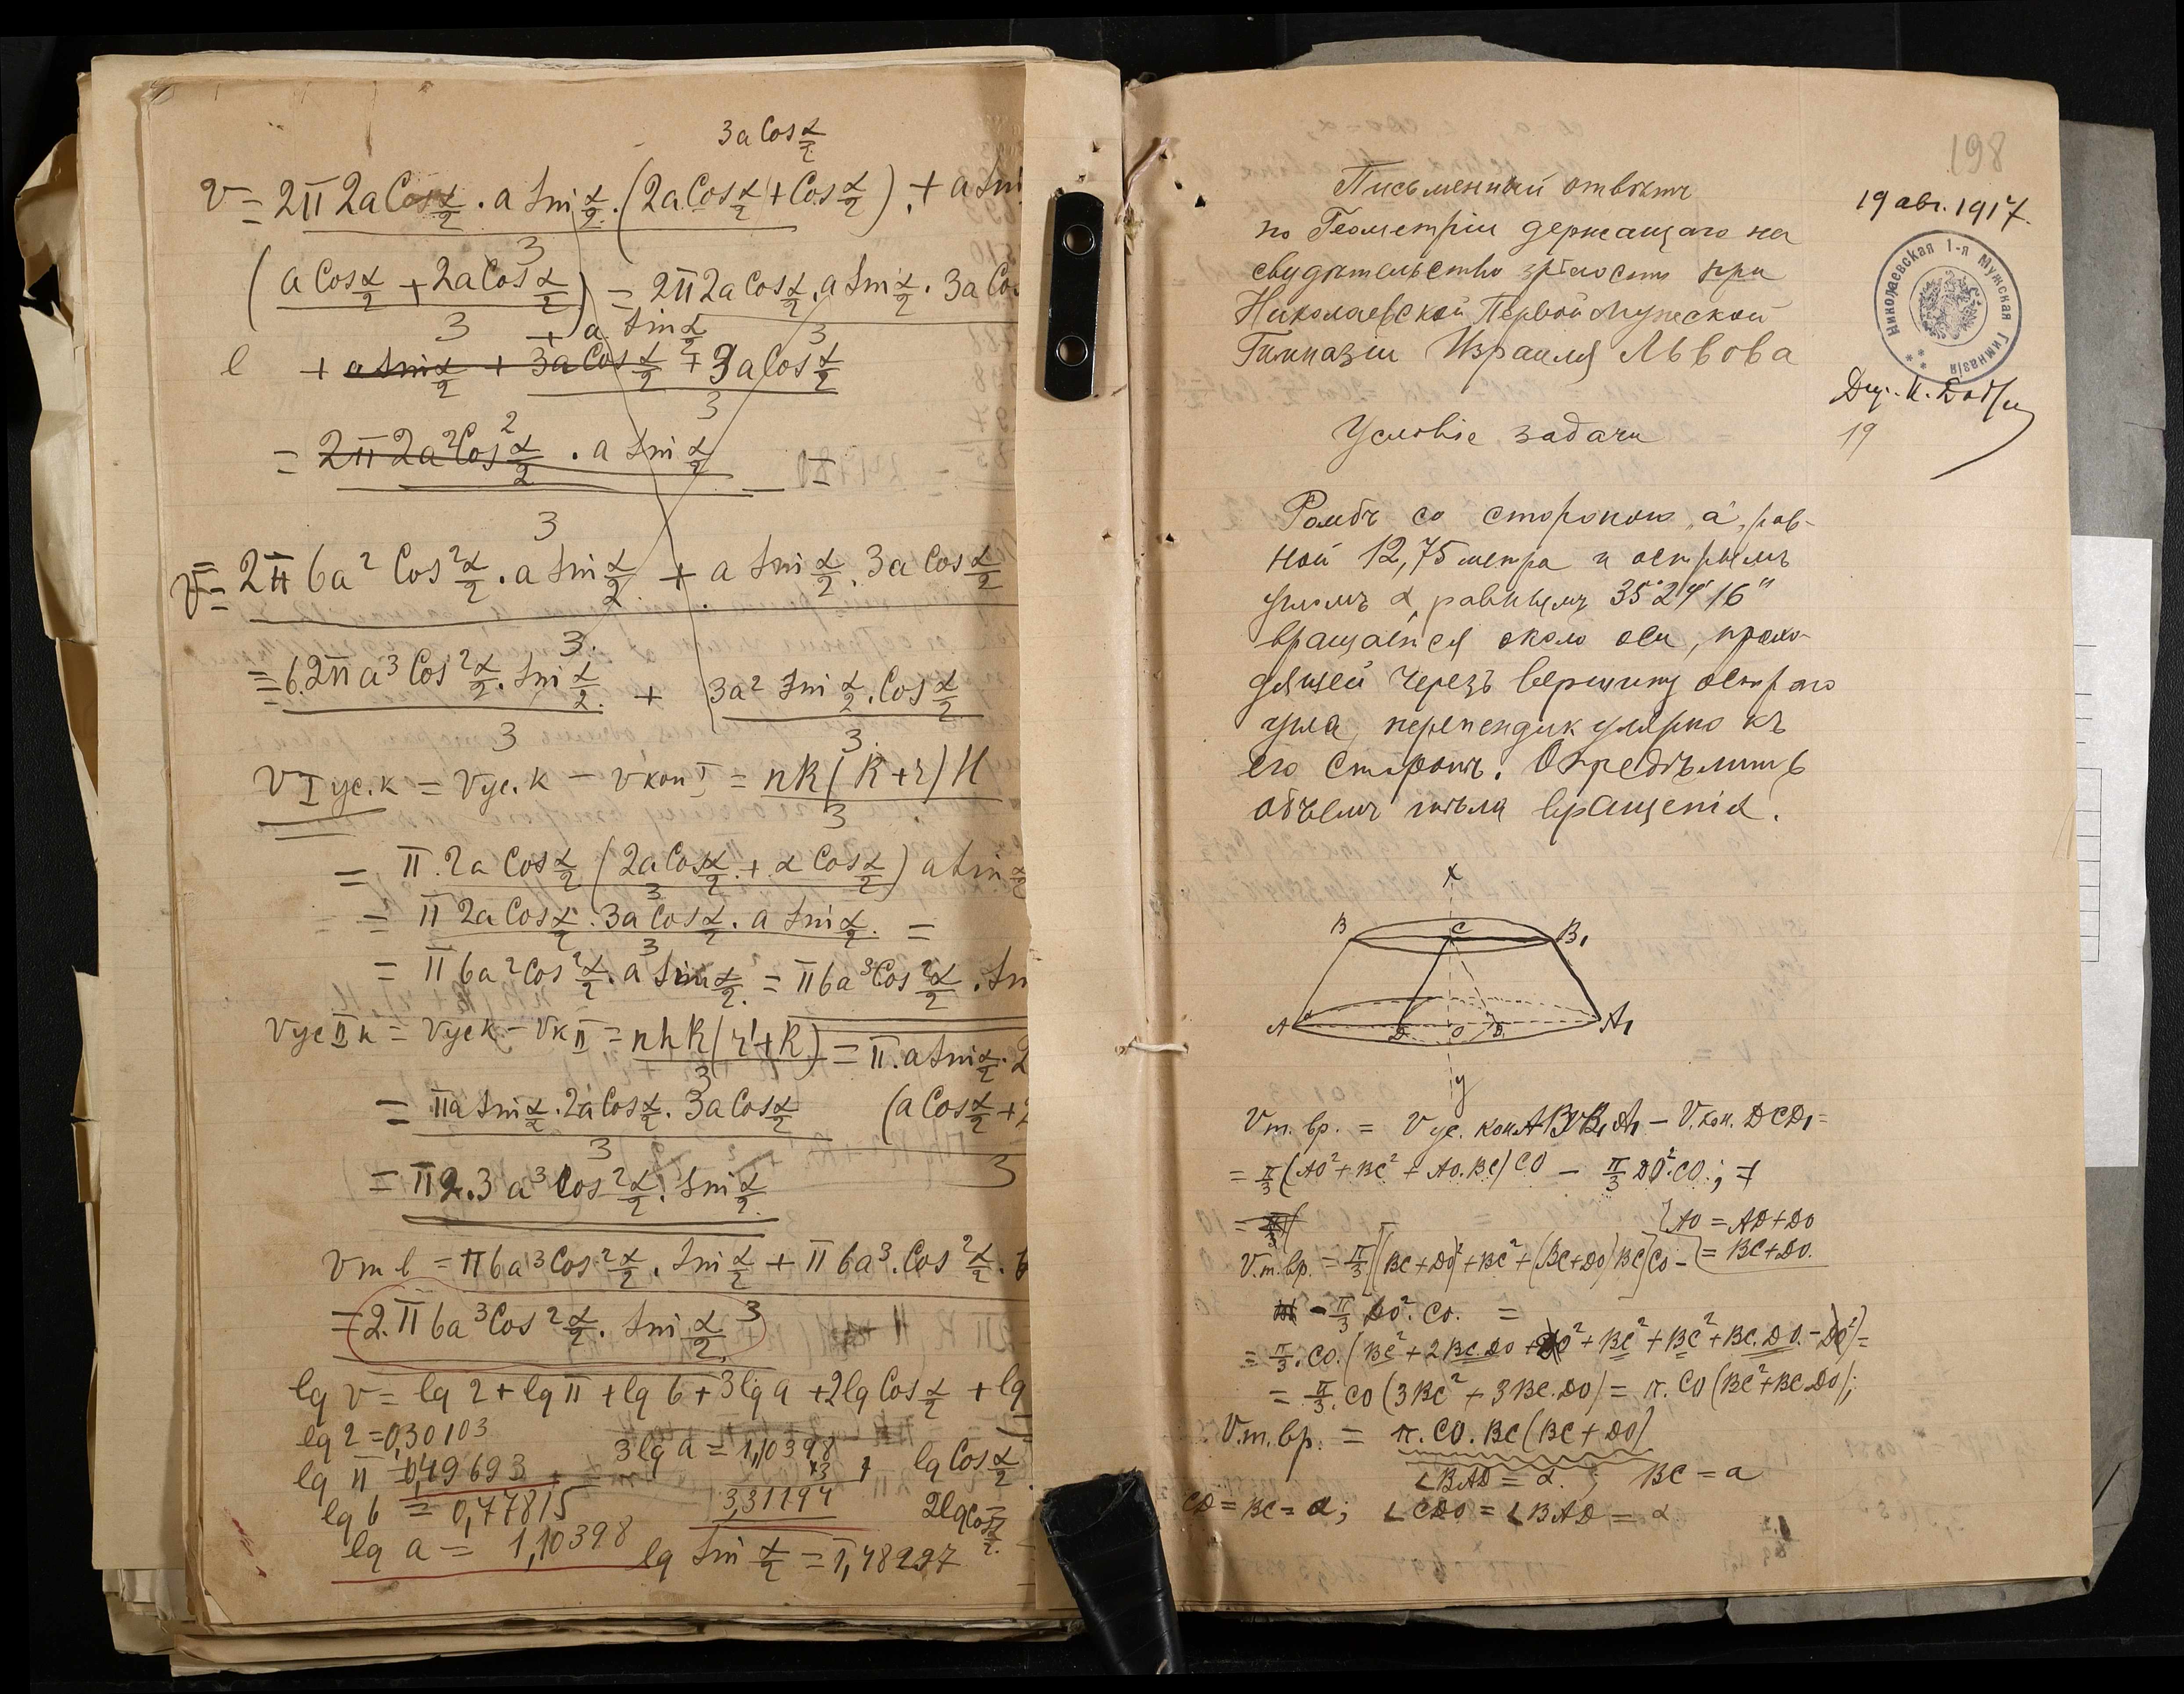 3a Cos α/2
v = 2π 2a Cos α/2 . a Sin α/2 . (2a Cos α/2 + Cos α/2) + a Sin
3
(a Cos α/2 + 2a Cos α/2) = 2π 2a Cos α/2 . a Sin α/2 . 3a Co
3 + a Sin α/2 3
+ a Sin α/2 + 3a Cos α/2 + 3a Cos α/2
3
= 2π 2a² Cos² α/2 . a Sin α/2 =
3
V = 2π 6a² Cos² α/2 . a Sin α/2 + a Sin α/2 . 3a Cos α/2
3.
= 6.2π a³ Cos² α/2 . Sin α/2 + 3a² Sin α/2 . Cos α/2
3 3.
V I ус.к = Vус.к − v кон I = πR(R+r)H
3
= π . 2a Cos α/2 (2a Cos α/2 + a Cos α/2) a Sin α/2
3
= π 2a Cos α/2 . 3a Cos α/2 . a Sin α/2 . =
3
= π 6a² Cos² α/2 . a Sin α/2 . = π 6a³ Cos² α/2 . Sin
Vус II к = Vус к − Vк II = πhR(r+R) = π . a Sin α/2 . 2
3
= πa Sin α/2 . 2a Cos α/2 . 3a Cos α/2 (a Cos α/2 + 2
3 3
= π 2.3 a³ Cos² α/2 . Sin α/2
V т в = π 6a³ Cos² α/2 . Sin α/2 + π 6a³ . Cos² α/2 .
= 2.π 6a³ Cos² α/2 . Sin α/2 3
lg v = lg 2 + lg π + lg 6 + 3 lg a + 2 lg Cos α/2 + lg
lg 2 = 0,30103
3 lg a = 1,10398
lg Cos α/2
lg π = 0,49693
×3
lg 6 = 0,77815
3,31194
2 lg Cos α/2
lg a = 1,10398
lg Sin α/2 = 1,48227
198
19 авг. 1917.
Письменный отвѣтъ
по Геометріи держащаго на
свидѣтельство зрѣлости при
Николаевской Первой Мужской
Гимназіи Израиля Львова
Николаевская 1-я Мужская Гимназія
19
Условіе задачи
Ромбъ со стороною „а", рав-
ной 12,75 метра и острымъ
угломъ α, равнымъ 35°24'16"
вращается около оси, прохо-
дящей черезъ вершину острого
угла, перпендикулярно къ
его сторонѣ. Опредѣлить
объемъ тѣла вращенія.
x
B C B₁
A D O D₁ A₁
y
V т. вр. = V ус. кон ABB₁A₁ − V. кон. DCD₁ =
= π/3 (AO² + BC² + AO.BC) CO − π/3 DO².CO ; +
{AO = AD + DO
V.т.вр. = π/3 [(BC + DO)² + BC² + (BC + DO) BC] CO − = BC + DO.
− π/3 DO² . CO. =
= π/3 . CO. (BC² + 2BC.DO + DO² + BC² + BC² + BC.DO − DO²) =
= π/3 . CO (3BC² + 3BC.DO) = π. CO (BC² + BC.DO);
V.т.вр. = π. CO. BC (BC + DO)
∠BAD = α ; BC = a
CD = BC = a; ∠CDO = ∠BAD = α